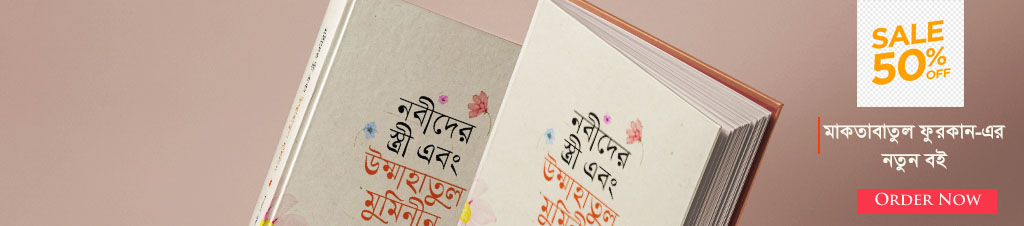 নবীদের
স্ত্রী এবং
উম্মাহাতুল
মুমিনীন
নবীদের
স্ত্রী এবং
উম্মাহাতুল
SALE
50%
OFF
মাকতাবাতুল ফুরকান-এর
নতুন বই
ORDER NOW